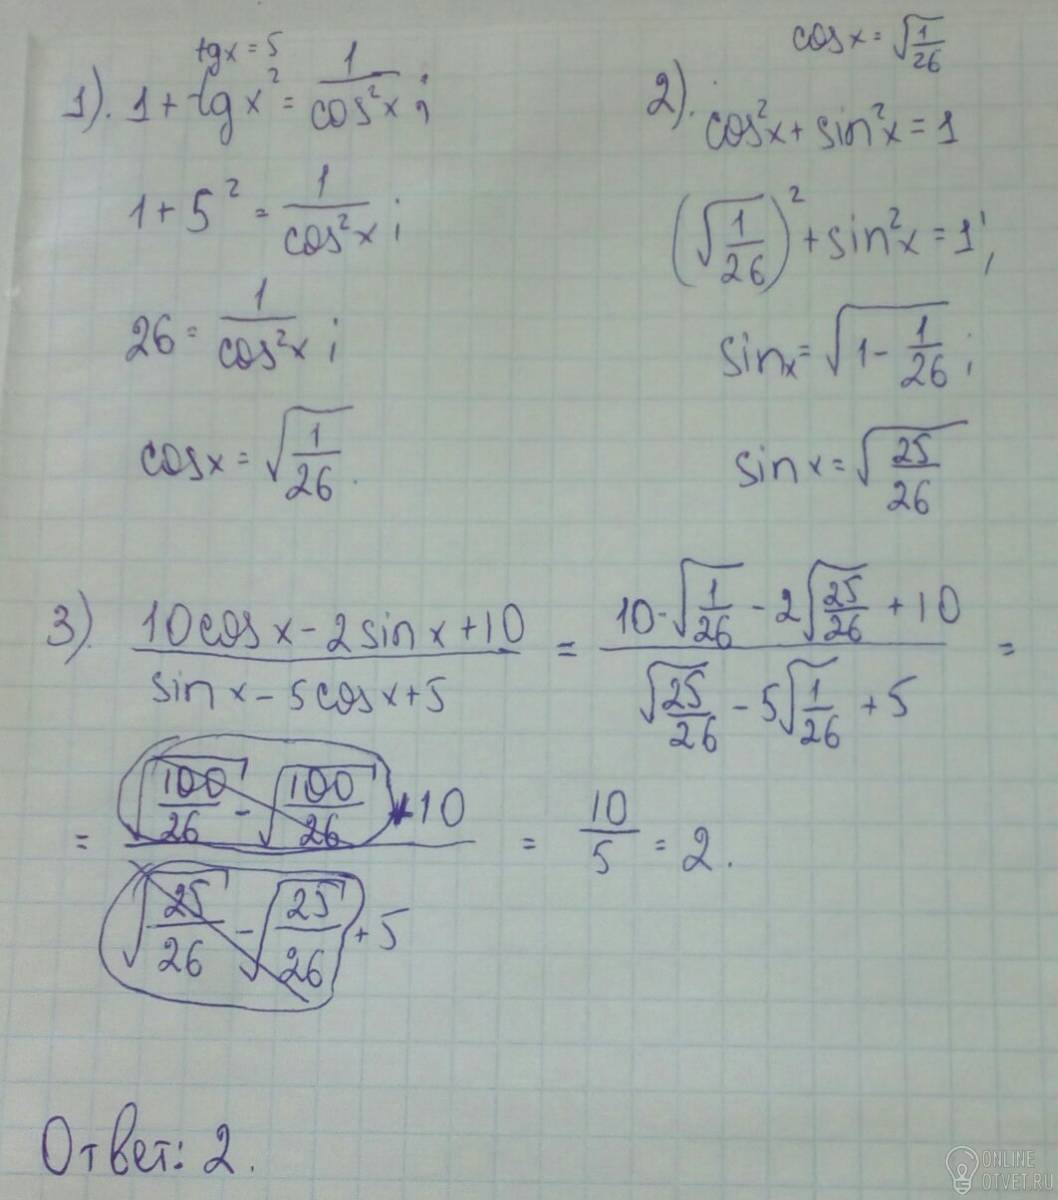 tgx = 5
1). 1 + tgx² = 1/cos²x ;
1 + 5² = 1/cos²x ;
26 = 1/cos²x ;
cosx = √(1/26) .
cosx = √(1/26)
2). cos²x + sin²x = 1
(√(1/26))² + sin²x = 1 ;
sinx = √(1 - 1/26) ;
sinx = √(25/26)
3). (10cosx - 2sinx + 10)/(sinx - 5cosx + 5) = (10·√(1/26) - 2√(25/26) + 10)/(√(25/26) - 5√(1/26) + 5) =
= (√(100/26) - √(100/26) + 10)/(√(25/26) - √(25/26) + 5) = 10/5 = 2.
Ответ: 2.
ONLINE
OTVET.RU